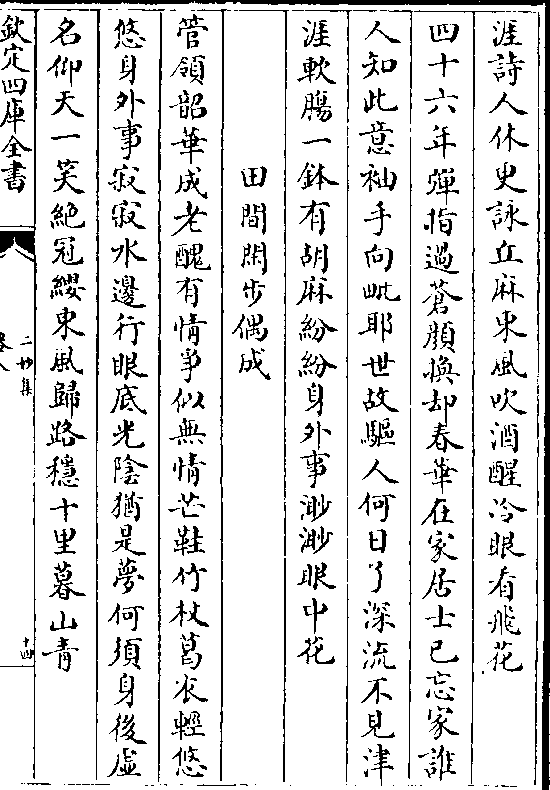 涯詩人休更詠丘麻東風吹酒醒冷眼看飛花
四十六年彈指過蒼顔換却春華在家居士已忘家誰
人知此意袖手向毗耶世故驅人何日了深流不見津
涯軟膓一鉢有胡麻紛紛身外事渺渺眼中花
田間閑步偶成
管領韶華成老醜有情爭似無情芒鞋竹杖葛衣輕悠
悠身外事寂寂水邊行眼底光陰猶是夢何須身後虚
名仰天一笑絶冠纓東風歸路穩十里暮山青
欽定四庫全書
二妙集
卷八
十四